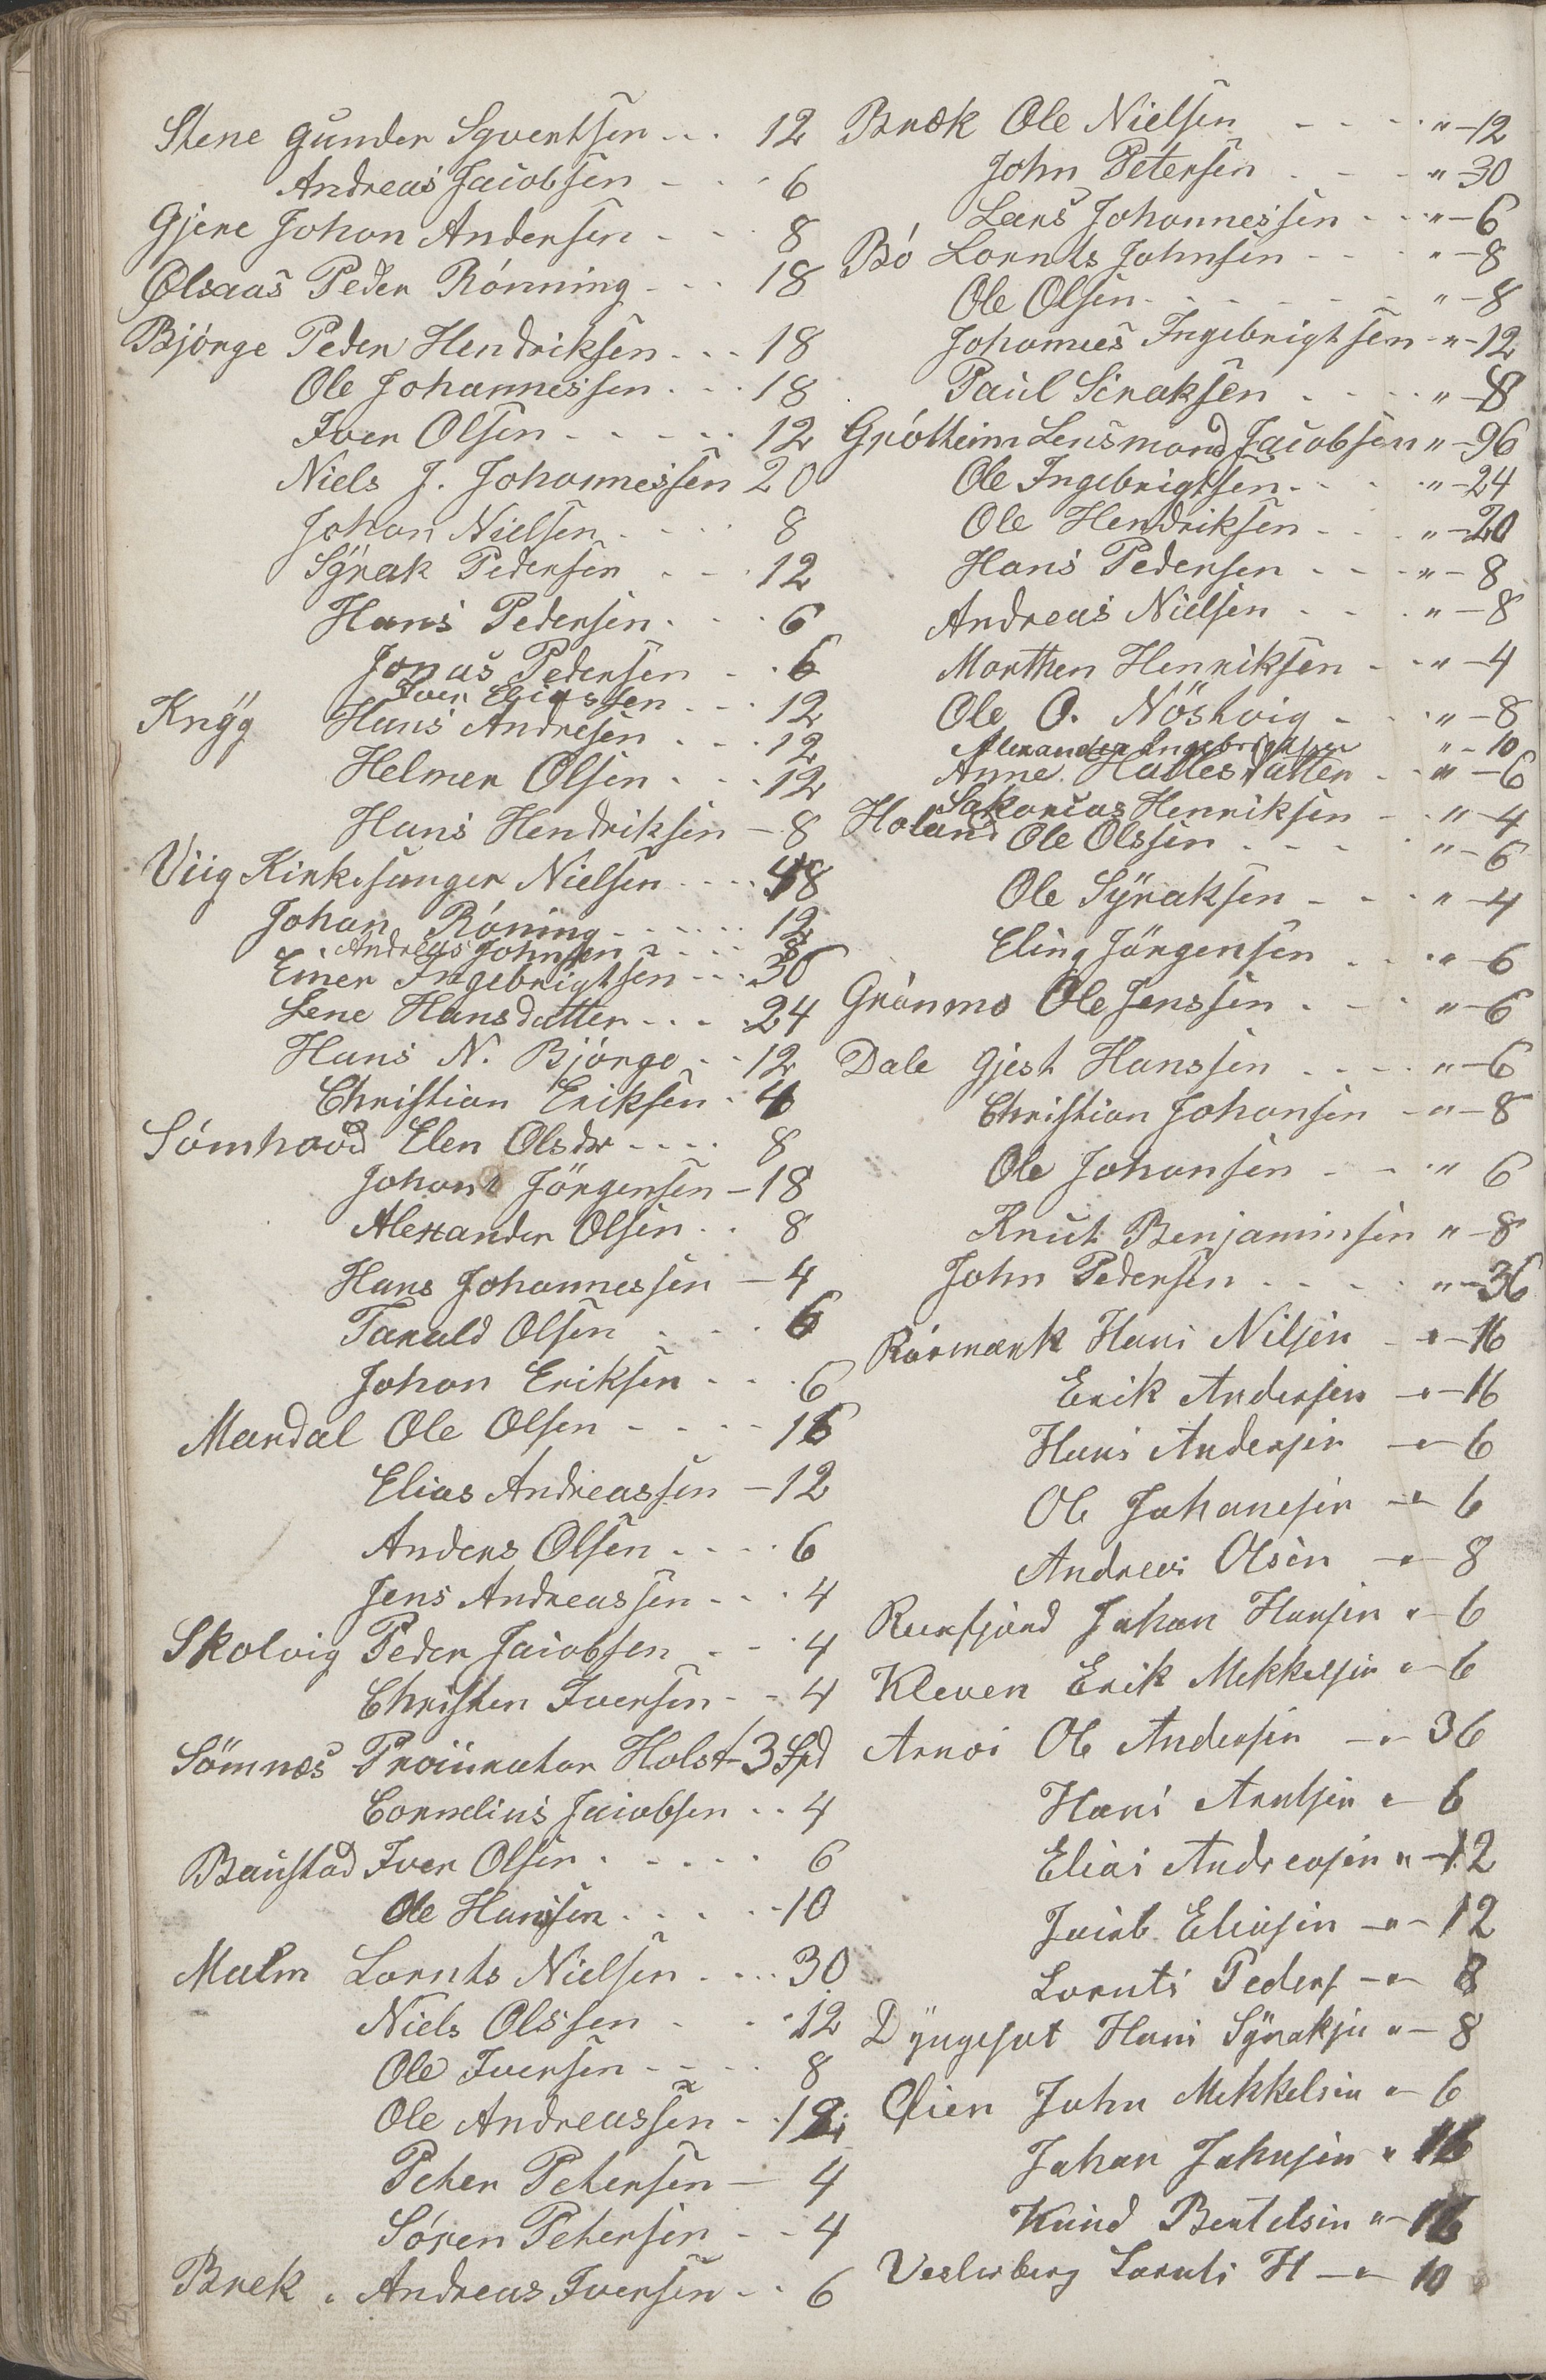 Stene Gunder Sqvertsen - - . 12
Andreas Jacobsen - - - 6
Gjere Johan Andersen - - 8
Olsaas Peder Rónning - - - 18
Bjórge Peder Hendriksen - - - 18
Ole Johannessen - - - 18
Iver Olsen - - - - - 12
Niels J. Johannessen 20
Johan Nielsen - - - 8
Sÿrak Pedersen - - - 12
Hans Pedersen - - - 6
Jonas Pedersen - - 6
Iver Eliassen - - - 12
Knÿg Hans Andresen - - - 12
Helmer Olsen - - - 12
Hans Hendriksen - 8
Viig Kirkesanger Nielsen - - - 48
Johan Róning - - - - - 12
Andreas Johnsen - - - 8
Einer Ingebrigtsen - - - 36
Lene Hansdatter - - - 24
Hans N. Bjórge - - 12
Christian Eriksen -
Sómhovd Elen Olsdtr - - - - 8
Johan Jörgensen - 18
Alexander Olsen - - 8
Hans Johannessen - 4
Tarald Olsen - - - 6
Johan Eriksen - - - 6
Mardal Ole Olsen - - - - 16
Elias Andreassen - 12
Anders Olsen - - - - 6
Jens Andreassen - - - 4
Skolvig Peder Jacobsen - - - 4
Christen Iversen - - 4
Sömnes Procurator Holst - 3 Spd
Cornelius Jacobsen - - 4
Baustad Iver Olsen - - - - - 6
Ole Hansen - - - - - 10
Malm Lornts Nielsen - - - 30
Niels Olssen - - - 12
Ole Iversen - - - - 8
Ole Andreassen - - 12
Peter Petersen - 4
Sóren Petersen - - 4
Brek . Andreas Iversen - - 6
Brek Ole Nielsen - - - - " - 12
John Petersen - - - " - 30
Lars Johannessen - - " - 6
Bó Lornts Johnsen - - - " - 8
Ole Olsen - - - - - - " - 8
Johannes Ingebrigtsen - " - 12
Paul Siraksen - - - - " - 8
Grótheim Lensmand Jacobsen " - 96
Ole Ingebrigtsen - - - " - 24
Ole Hendriksen - - - " - 20
Hans Pedersen - - - " - 8
Andreas Nielsen - - - " - 8
Morthen Henriksen - - " - 4
Ole O. Nöstvig - - - " - 8
Alexander Ingebrigtsen " - 10
Anne Hallesdatter - - " - 6
Sakarias Henriksen - - " - 4
Holand Ole Olssen - - - - " - 6
Ole Sÿraksen - - - " - 4
Eling Jörgensen - - - " - 6
Grónmo Ole Jenssen - - - " - 6
Dale Gjest Hanssen - - - - " - 6
Christian Johansen - " - 8
Ole Johansen - - " 6
Knut Benjaminsen " - 8
John Pedersen - - - - " - 36
Rórmark Hans Nilsen - " - 16
Erik Andersen - " - 16
Hans Andersen - " - 6
Ole Johanesen - " - 6
Andreas Olsen - " - 8
Johan Hansen " - 6
Kleven Erik Mekkelsen " - 6
Arnoi Ole Andersen - " - 36
Hans Arntsen " - 6
Elias Andreasen " - 12
Jacob Eliasen - " - 12
Lornts Peders - " - 8
Hans Sÿraksen " - 8
Öien John Mekkelsen " - 6
Johan Johnsen " 16
Knud Bentelsen " - 16
Vesterberg Lornts H - " - 10